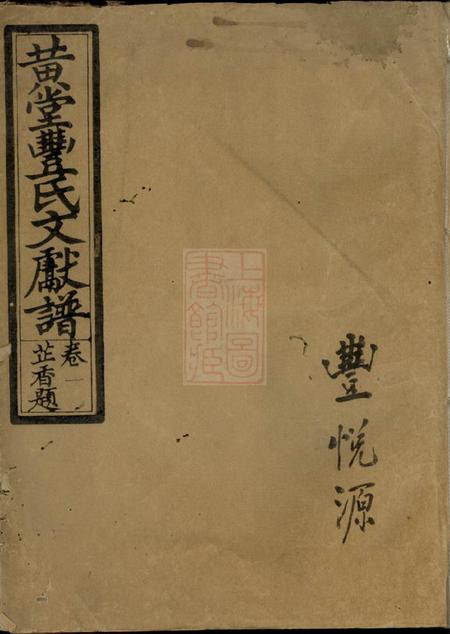 黄堂豐氏文獻譜
卷一
芷香題
上海圖
書館藏
豐悅源